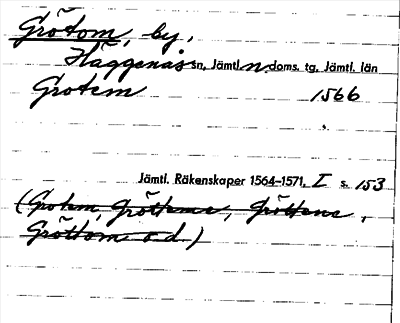 Grötom, by,
Häggenås sn, Jämtl. n. doms. tg, Jämtl. län
Grotem 1566
Jämtl. Räkenskaper 1564–1571, I s. 153
(Grotem, Gröttems, Gröttens,
Gröttom o.d.)